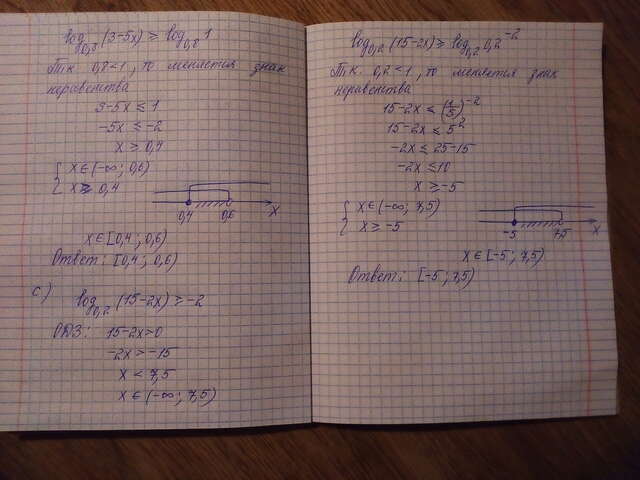 log0,8 (3-5x) ≥ log0,8 1
Т.к. 0,8<1, то меняется знак
неравенства
3-5x ≤ 1
-5x ≤ -2
x ≥ 0,4
{ x ∈ (-∞; 0,6)
{ x ≥ 0,4
0,4 0,6 x
x ∈ [0,4; 0,6)
Ответ: [0,4; 0,6)
c)
log0,2 (15-2x) ≥ -2
ОДЗ: 15-2x>0
-2x > -15
x < 7,5
x ∈ (-∞; 7,5)
log0,2 (15-2x) ≥ log0,2 0,2^-2
Т.к. 0,2<1, то меняется знак
неравенства
15-2x ≤ (1/5)^-2
15-2x ≤ 5^2
-2x ≤ 25-15
-2x ≤ 10
x ≥ -5
{ x ∈ (-∞; 7,5)
{ x ≥ -5
-5 7,5 x
x ∈ [-5; 7,5)
Ответ: [-5; 7,5)